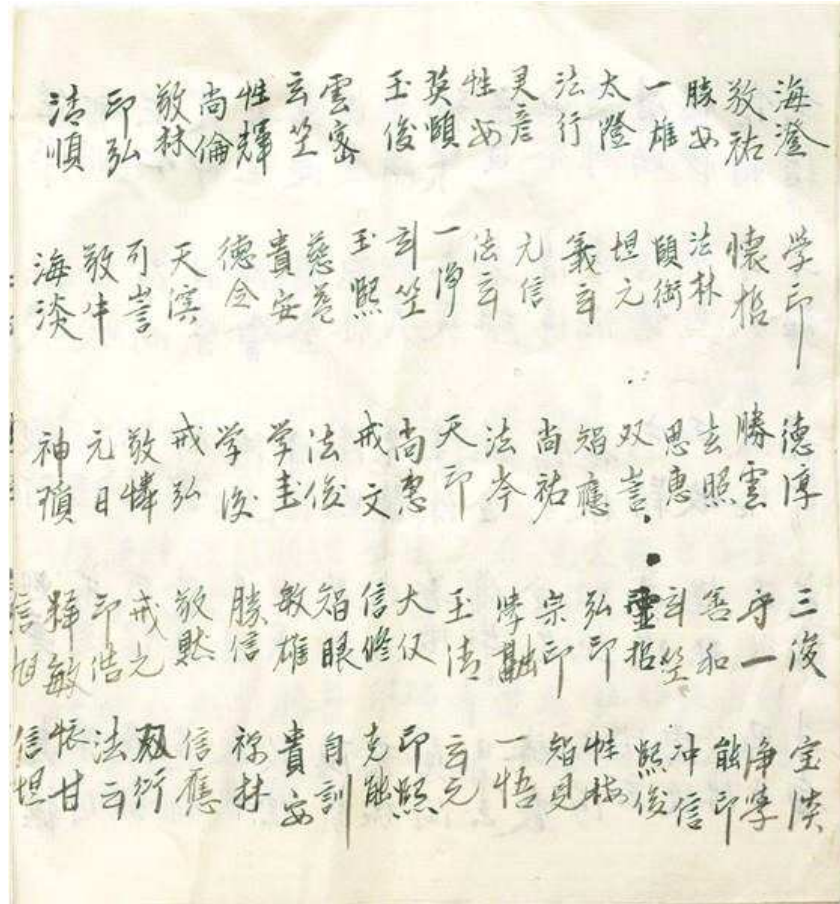 海澄 敬祐 勝安 一雄 太澄 法行 灵彦 性安 英頤 玉俊 雲密 玄竺 性輝 尚倫 敬林 印弘 清順
学印 懐哲 法林 頤衍 坦元 義玄 元信 法玄 一浄 玄竺 玉熙 貴安 德念 天濱 可嵩 敬中 海淡
德淳 勝雲 玄照 思惠 双嵩 智應 尚祐 法岑 天印 尚惠 戒文 法俊 学圭 学俊 戒弘 敬憐 元日 神頊
三俊 守一 善和 玄竺 靈哲 弘印 宗印 學融 玉清 大仅 信修 智眼 敏雄 勝信 敬然 戒元 印浩 釋敏 信旭
宝淡 净学 能印 冲信 熙俊 性梅 智見 一悟 玄元 印熙 克能 自訓 貴安 禄林 信應 双衍 法云 懐甘 信坦